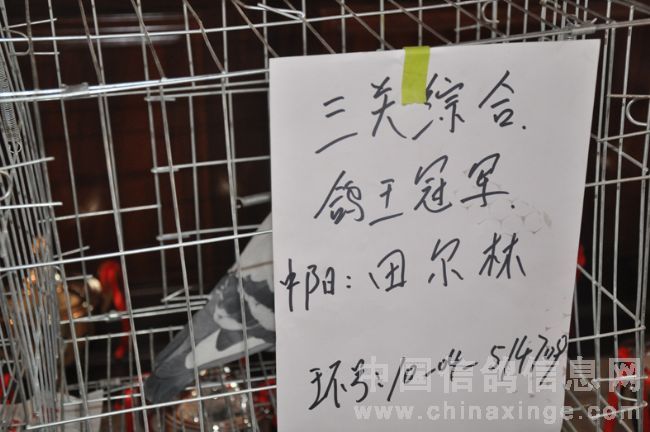 三关综合.
鸽王冠军.
中阳:田尔林
环号:10-04-514708
中国信鸽信息网
www.chinaxinge.com